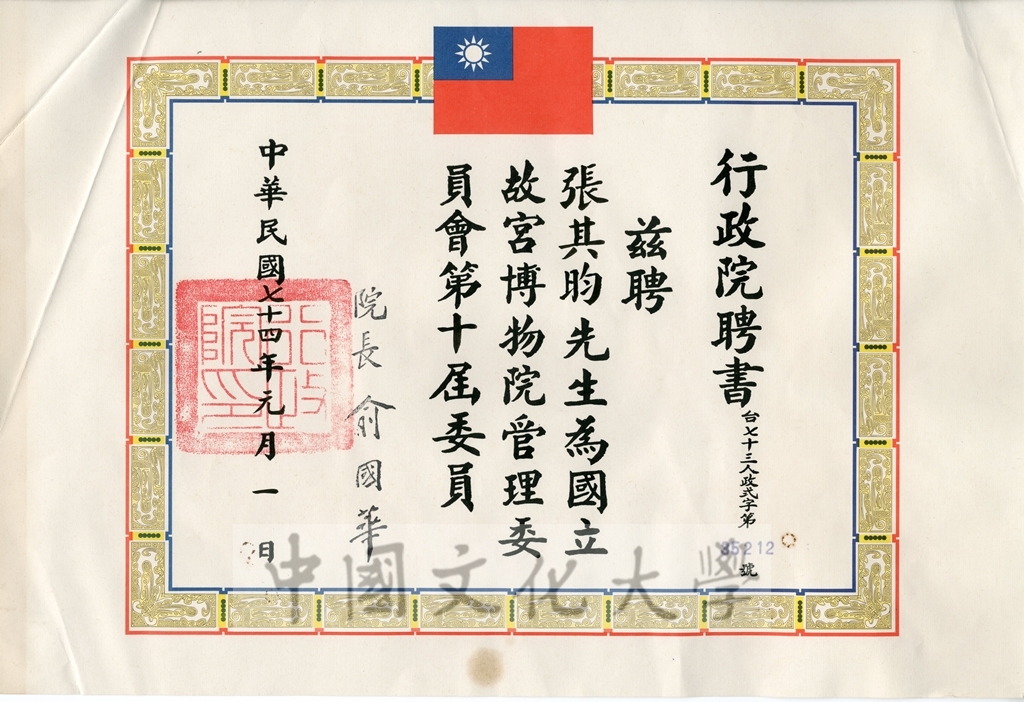 行政院聘書
台七十三人政弍字第35212號
茲聘
張其昀先生為國立
故宮博物院管理委
員會第十屆委員
院長 俞國華
中華民國七十四年元月一日
行政院印
中國文化大學